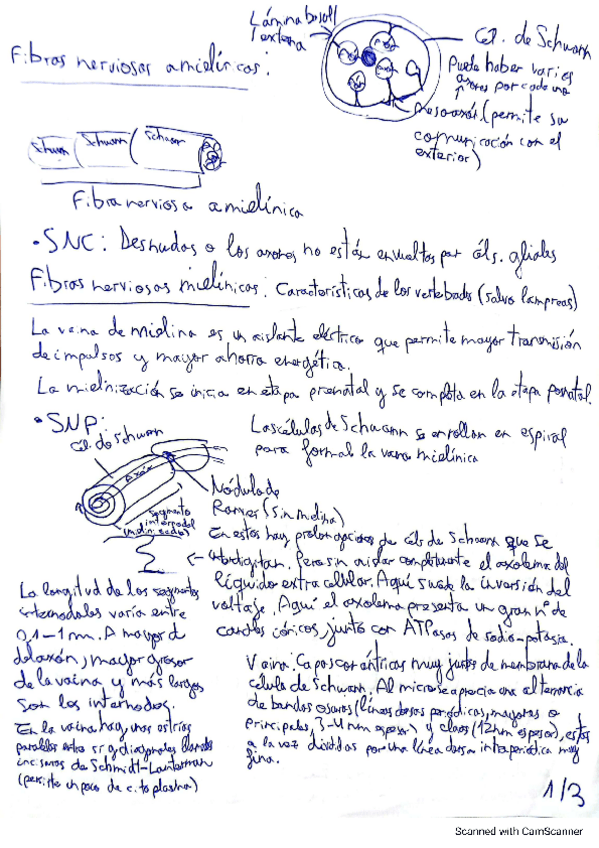 Lámina basal/
externa
Cél. de Schwann
Fibras nerviosas amielínicas:
Puede haber varios
axones por cada una
Mesoaxón (permite su
comunicación con el
exterior)
Schwann
Schwann
Schwann
Fibra nerviosa amielínica
• SNC: Desnudas o los axones no están envueltos por céls. gliales
Fibras nerviosas mielínicas: Características de los vertebrados (salvo lampreas)
La vaina de mielina es un aislante eléctrico que permite mayor transmisión
de impulsos y mayor ahorro energético.
La mielinización se inicia en etapa prenatal y se completa en la etapa postnatal.
• SNP:
Cél. de Schwann
Las células de Schwann se enrollan en espiral
para formar la vaina mielínica
Axón
Nódulo de
Ranvier (sin mielina)
segmento
internodal
En estos hay prolongaciones de céls de Schwann que se
interdigitan. Pero sin aislar completamente el axolema del
líquido extracelular. Aquí sucede la inversión del
voltaje. Aquí el axolema presenta un gran nº de
canales iónicos, junto con ATPasas de sodio-potasio.
La longitud de los segmentos
internodales varía entre
0,1-1 mm. A mayor d
del axón, mayor grosor
de la vaina y más largos
son los internodos.
En la vaina hay unas estrías
paralelas entre sí y diagonales llamadas
incisuras de Schmidt-Lanterman
(permite un poco de citoplasma)
Vaina: Capas concéntricas muy juntas de membrana de la
célula de Schwann. Al micro se aprecia una alternancia
de bandas oscuras (líneas densas periódicas, mayores o
principales, 3-4 nm espesor) y claras (12 nm espesor), estas
a la vez divididas por una línea densa intraperiódica muy
fina.
1/3
Scanned with CamScanner